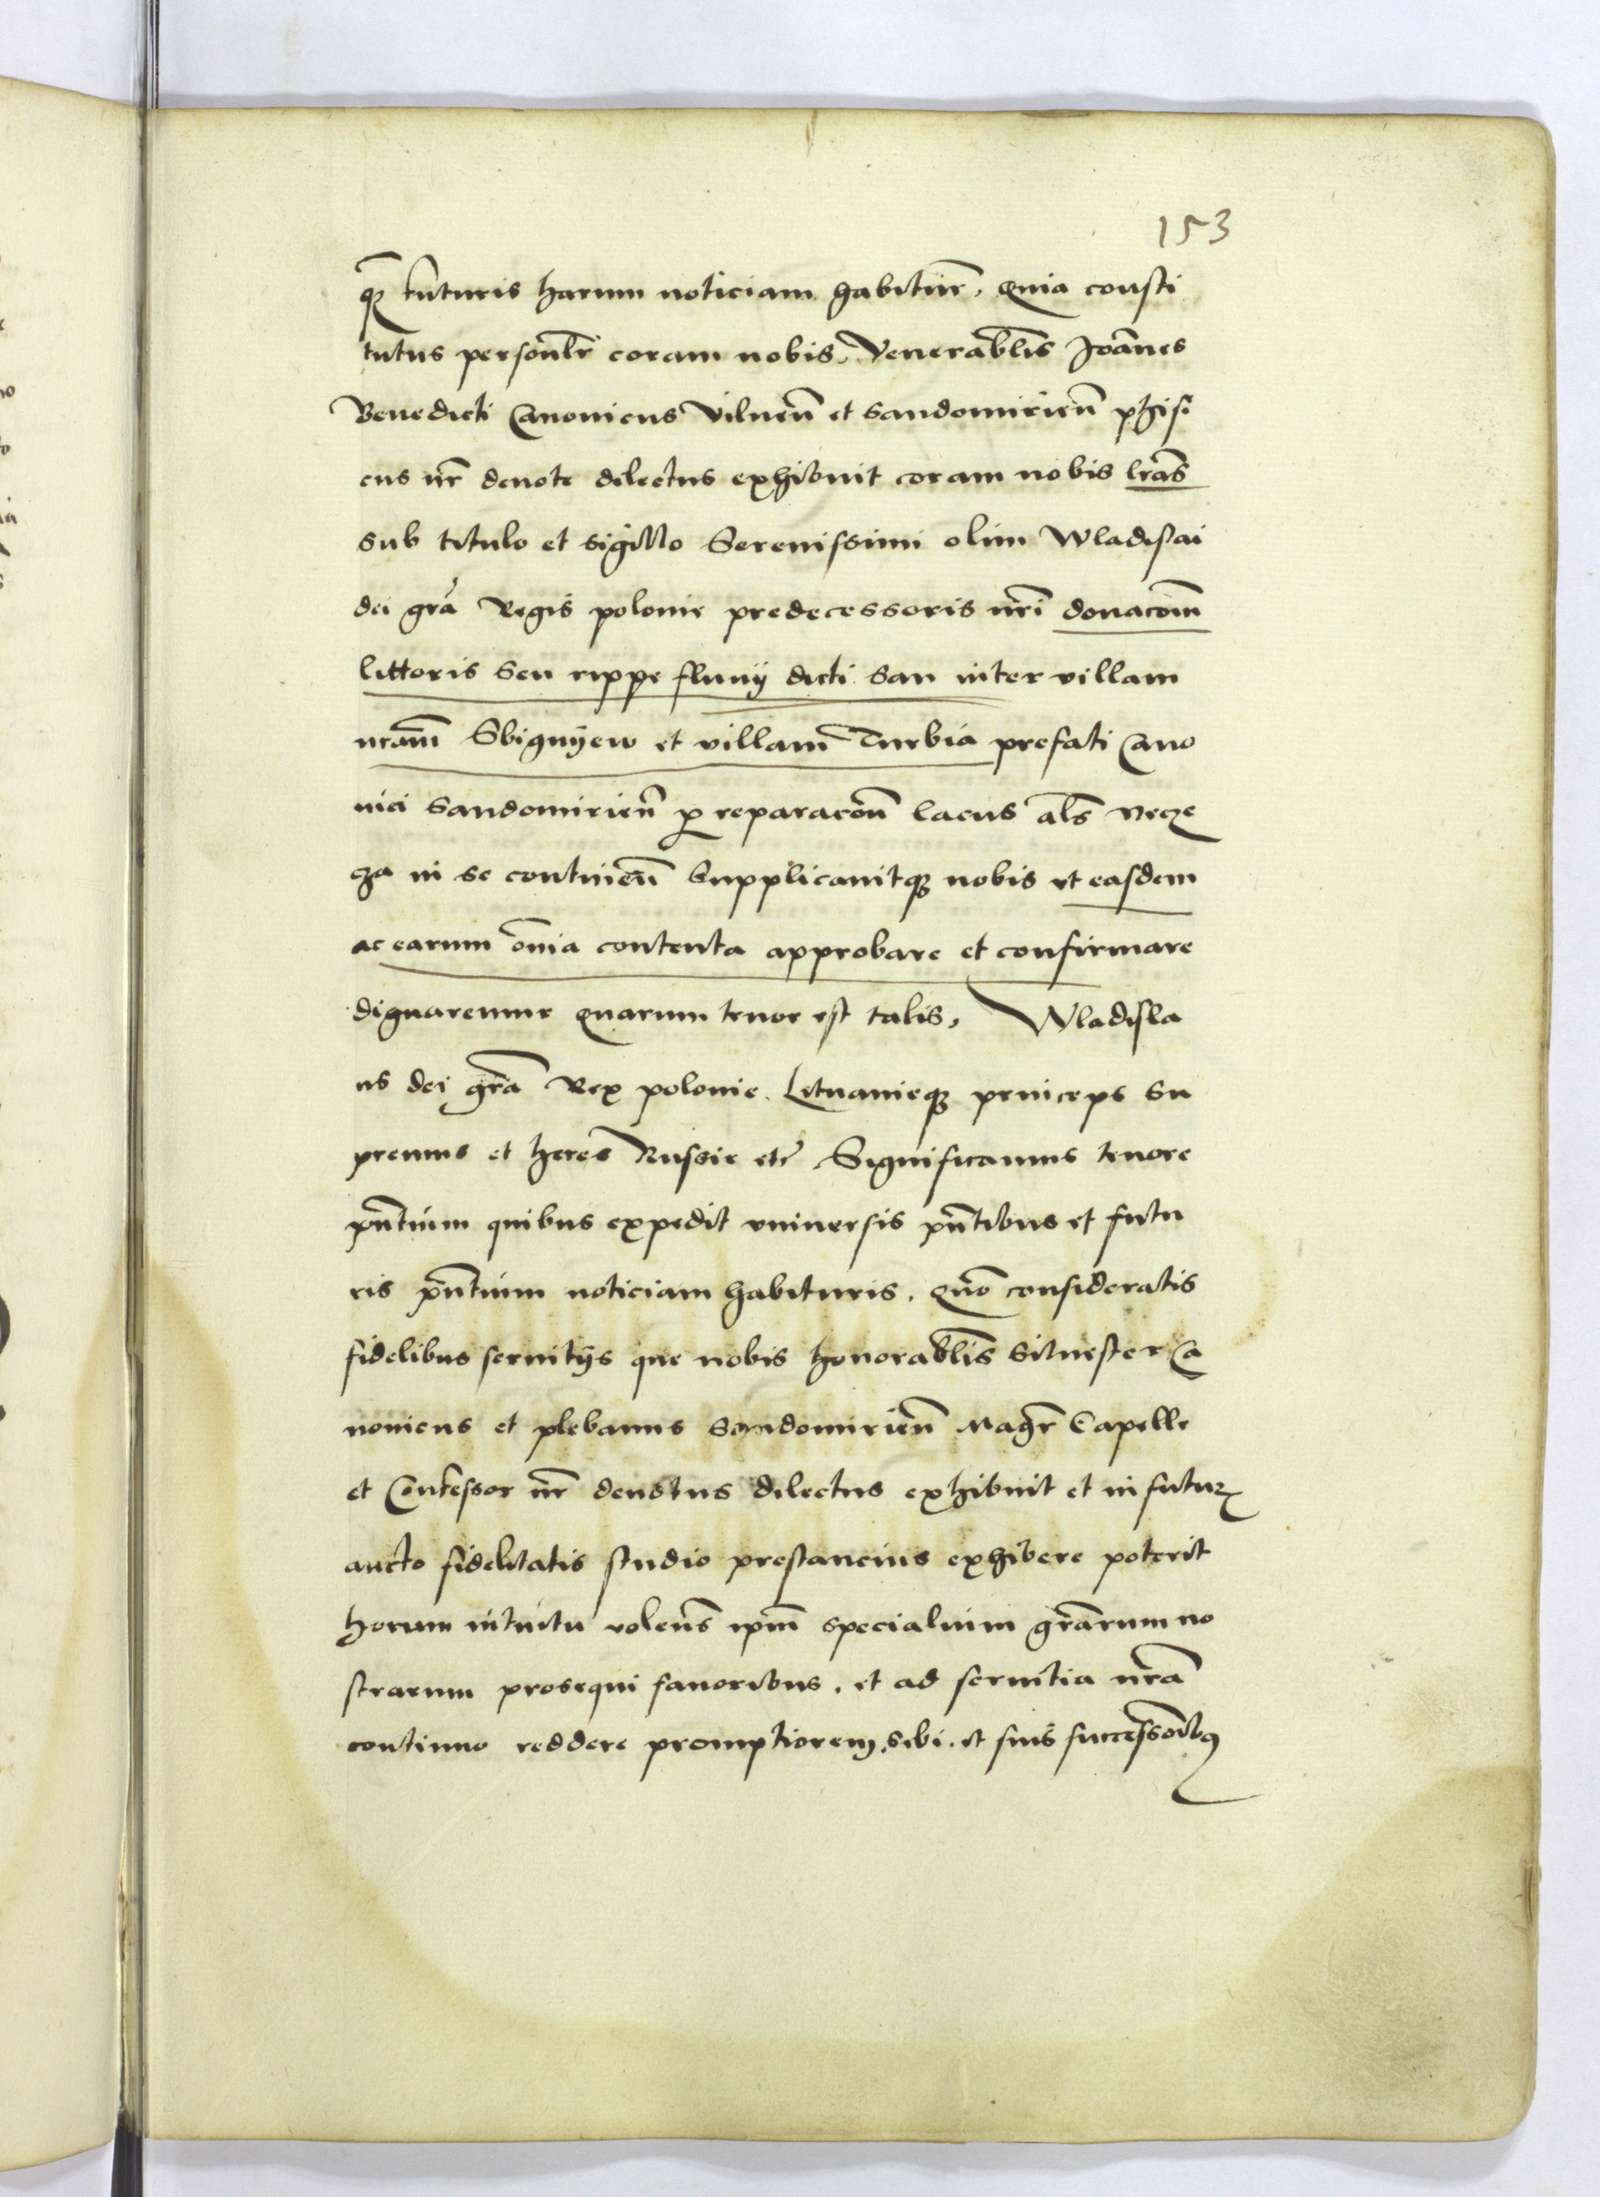 153
q̃ futuris harum noticiam habitur̃. Quia consti
tutus personl̃r coram nobis. Venerabl̃is Joãnes
Benedicti Canonicus Vilnen̄ et Sandomirien̄ phisi
cus nr̃ deuote dilectus exhibuit coram nobis lr̃as
sub titulo et sigillo Serenissimi olim Wladislai
dei gr̃a Regis polonie predecessoris nr̃i donacom̃
littoris seu rippe fluuij dicti San inter villam
nr̃am Sbignyew et villam Turbia prefati Cano
nici Sandomirien̄ p reparacõm lacus als̃ Recze
cza in se continen̄ Supplicauitq nobis vt easdem
ac earum om̃ia contenta approbare et confirmare
dignaremur quarum tenor est talis, Wladisla
us dei gr̃a Rex polonie. Lituanieq princeps Su
premus et heres Russie etc̃ Significamus tenore
pñtium quibus expedit vniuersis pñtibus et futu
ris pñtium noticiam habituris. Quõ consideratis
fidelibus seruitijs que nobis honorabl̃is Siluester Ca
nonicus et plebanus Sandomirien̄ Magr̃ Capelle
et Confessor nr̃ deuotus dilectus exhibuit et in futur̃
aucto fidelitatis studio prestancius exhibere poterit
horum intuitu volen̄s ipm̃ specialium gr̃arum no
strarum prosequi fauoribus. et ad seruitia nr̃a
continuo reddere promptiorem. sibi. et suis successoribq